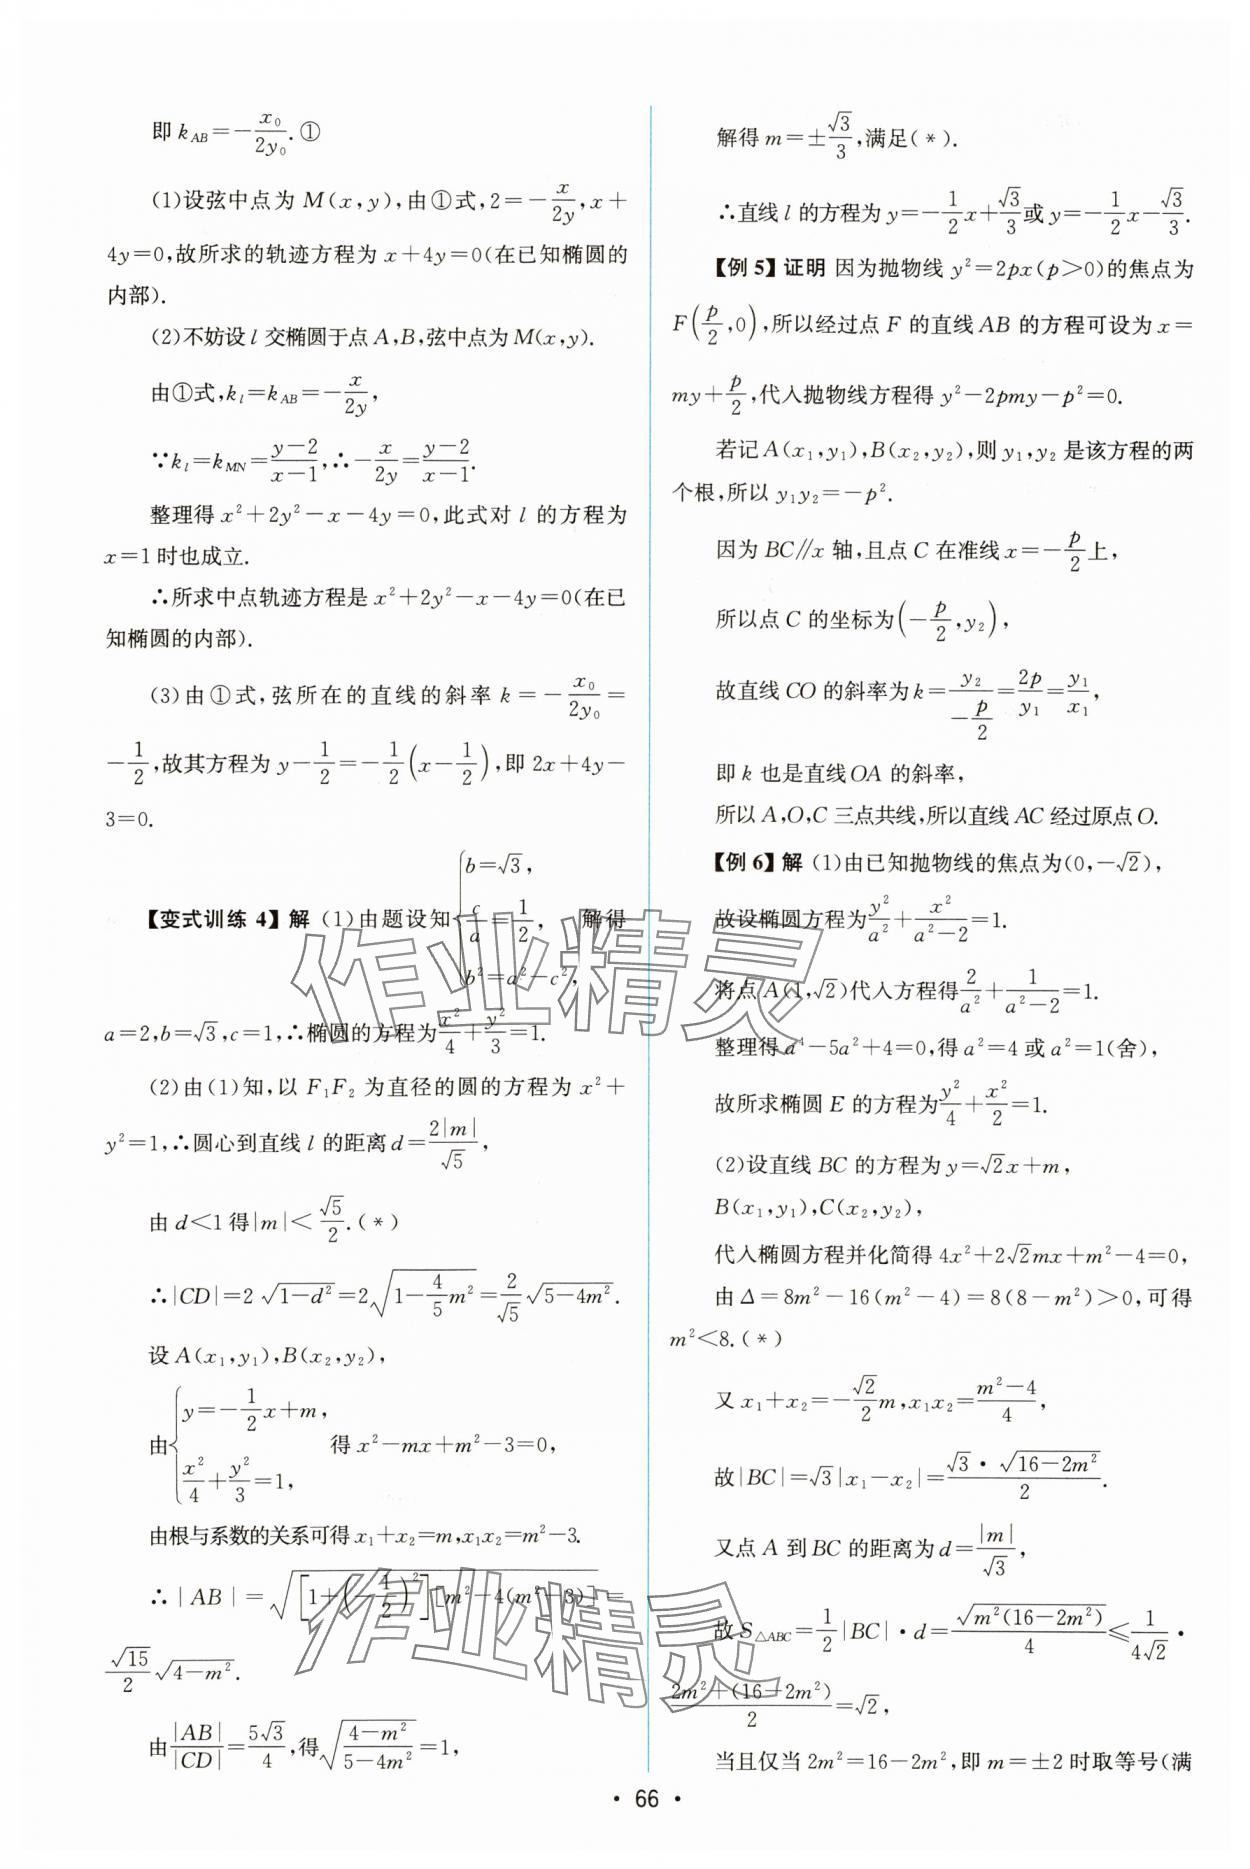 即 k_{AB}=-\frac{x_0}{2y_0}.①
(1)设弦中点为 M(x,y),由①式,2=-\frac{x}{2y},x+
4y=0,故所求的轨迹方程为 x+4y=0(在已知椭圆的
内部).
(2)不妨设 l 交椭圆于点 A,B,弦中点为 M(x,y).
由①式,k_l=k_{AB}=-\frac{x}{2y},
∵k_l=k_{MN}=\frac{y-2}{x-1},∴-\frac{x}{2y}=\frac{y-2}{x-1}.
整理得 x²+2y²-x-4y=0,此式对 l 的方程为
x=1 时也成立.
∴所求中点轨迹方程是 x²+2y²-x-4y=0(在已
知椭圆的内部).
(3)由①式,弦所在的直线的斜率 k=-\frac{x_0}{2y_0}=
-\frac{1}{2},故其方程为 y-\frac{1}{2}=-\frac{1}{2}(x-\frac{1}{2}),即 2x+4y-
3=0.
【变式训练 4】解 (1)由题设知{b=√3, \frac{c}{a}=\frac{1}{2}, b²=a²-c², 解得
a=2,b=√3,c=1,∴椭圆的方程为\frac{x²}{4}+\frac{y²}{3}=1.
(2)由(1)知,以 F₁F₂ 为直径的圆的方程为 x²+
y²=1,∴圆心到直线 l 的距离 d=\frac{2|m|}{√5},
由 d<1 得|m|<\frac{√5}{2}.(*)
∴|CD|=2\sqrt{1-d²}=2\sqrt{1-\frac{4}{5}m²}=\frac{2}{√5}\sqrt{5-4m²}.
设 A(x₁,y₁),B(x₂,y₂),
由{y=-\frac{1}{2}x+m, \frac{x²}{4}+\frac{y²}{3}=1, 得 x²-mx+m²-3=0,
由根与系数的关系可得 x₁+x₂=m,x₁x₂=m²-3.
∴|AB|=\sqrt{[1+(-\frac{1}{2})²][m²-4(m²-3)]}=
\frac{√15}{2}\sqrt{4-m²}.
由\frac{|AB|}{|CD|}=\frac{5√3}{4},得\sqrt{\frac{4-m²}{5-4m²}}=1,
解得 m=±\frac{√3}{3},满足(*).
∴直线 l 的方程为 y=-\frac{1}{2}x+\frac{√3}{3}或 y=-\frac{1}{2}x-\frac{√3}{3}.
【例 5】证明 因为抛物线 y²=2px(p>0)的焦点为
F(\frac{p}{2},0),所以经过点 F 的直线 AB 的方程可设为 x=
my+\frac{p}{2},代入抛物线方程得 y²-2pmy-p²=0.
若记 A(x₁,y₁),B(x₂,y₂),则 y₁,y₂ 是该方程的两
个根,所以 y₁y₂=-p².
因为 BC∥x 轴,且点 C 在准线 x=-\frac{p}{2}上,
所以点 C 的坐标为(-\frac{p}{2},y₂),
故直线 CO 的斜率为 k=\frac{y_2}{-\frac{p}{2}}=\frac{2p}{y_1}=\frac{y_1}{x_1},
即 k 也是直线 OA 的斜率,
所以 A,O,C 三点共线,所以直线 AC 经过原点 O.
【例 6】解 (1)由已知抛物线的焦点为(0,-√2),
故设椭圆方程为\frac{y²}{a²}+\frac{x²}{a²-2}=1.
将点 A(1,√2)代入方程得\frac{2}{a²}+\frac{1}{a²-2}=1.
整理得 a⁴-5a²+4=0,得 a²=4 或 a²=1(舍),
故所求椭圆 E 的方程为\frac{y²}{4}+\frac{x²}{2}=1.
(2)设直线 BC 的方程为 y=√2x+m,
B(x₁,y₁),C(x₂,y₂),
代入椭圆方程并化简得 4x²+2√2mx+m²-4=0,
由 Δ=8m²-16(m²-4)=8(8-m²)>0,可得
m²<8.(*)
又 x₁+x₂=-\frac{√2}{2}m,x₁x₂=\frac{m²-4}{4},
故|BC|=√3|x₁-x₂|=\frac{√3·\sqrt{16-2m²}}{2}.
又点 A 到 BC 的距离为 d=\frac{|m|}{√3},
故 S_{△ABC}=\frac{1}{2}|BC|·d=\frac{\sqrt{m²(16-2m²)}}{4}≤\frac{1}{4√2}·
\frac{2m²+(16-2m²)}{2}=√2,
当且仅当 2m²=16-2m²,即 m=±2 时取等号(满
·66·
作业精灵
作业精灵